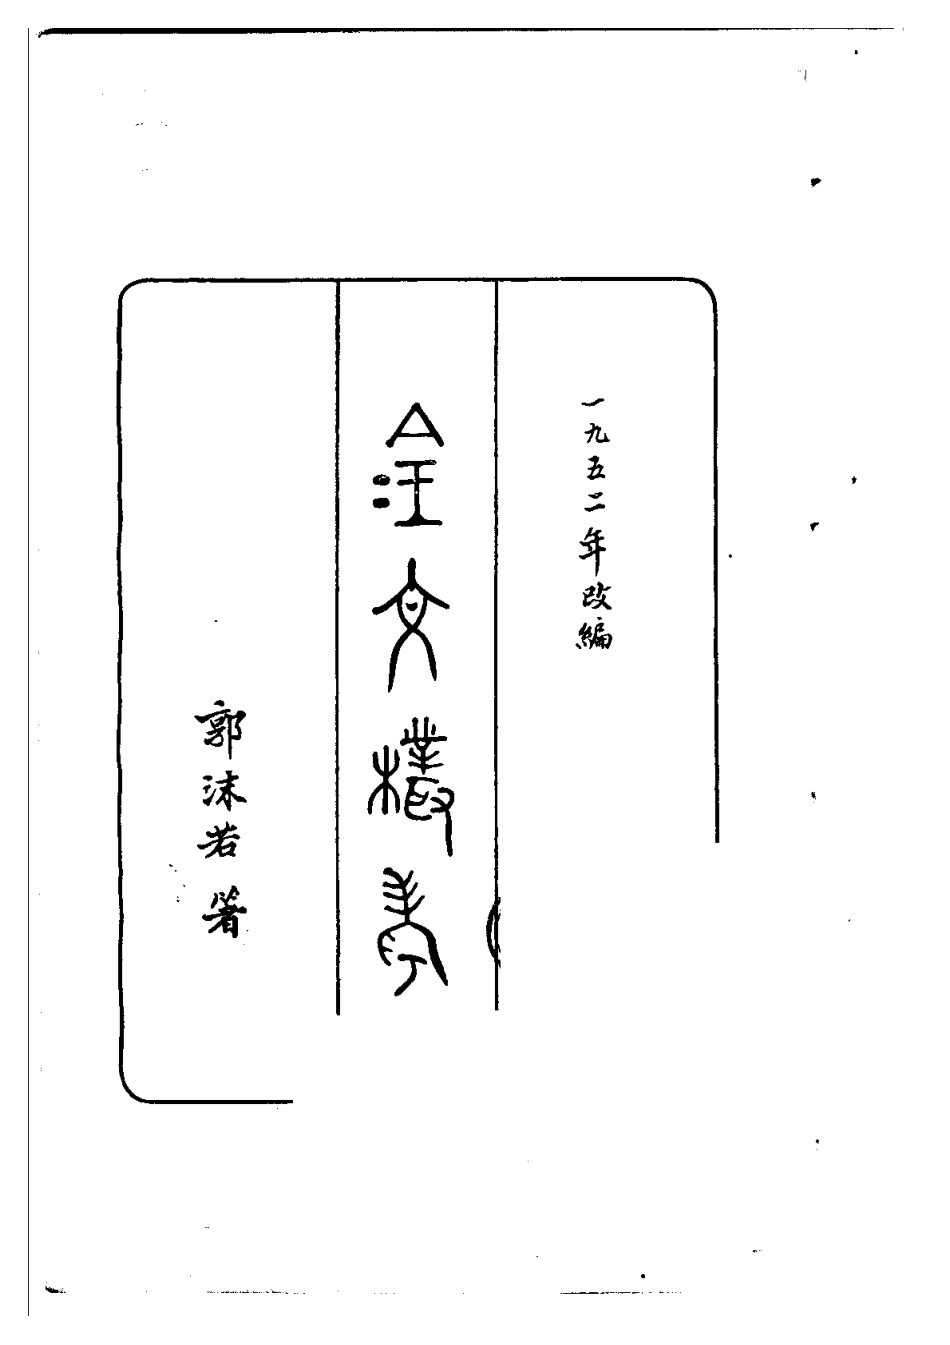 一九五二年改編
金文叢考
郭沫若箸